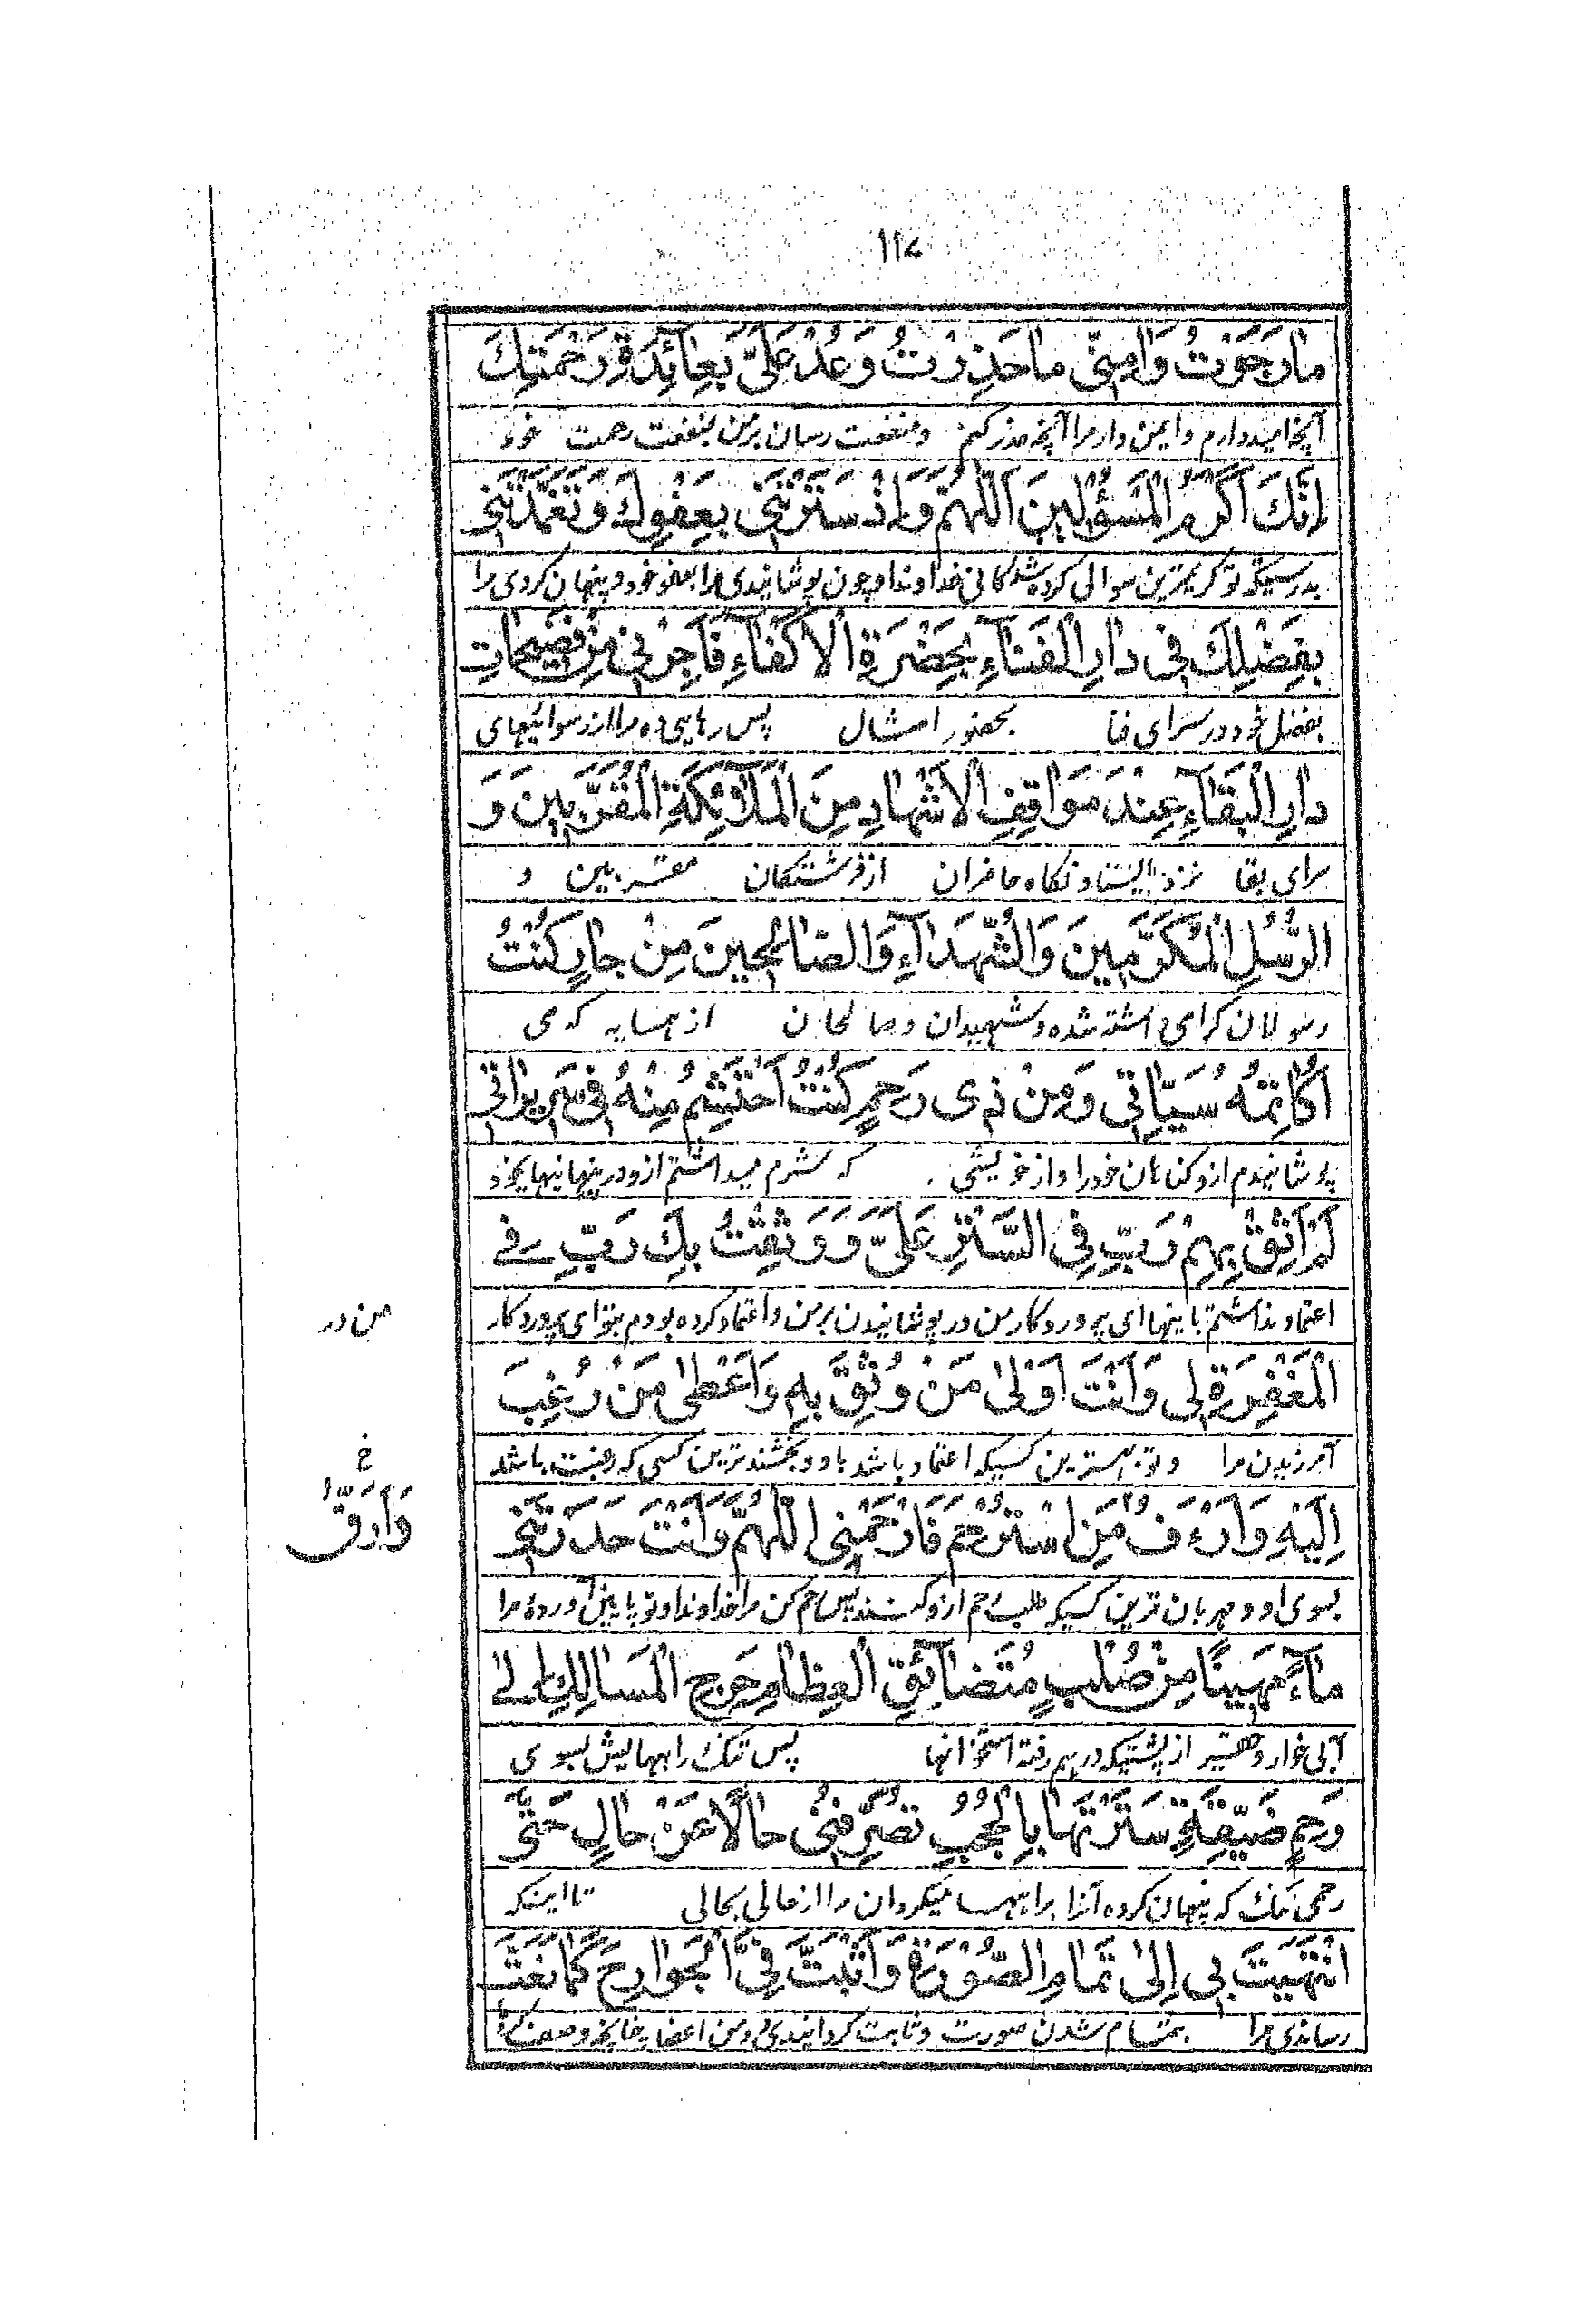 ۱۱۷
مٰا رَجَوْتُ وَاٰمِنّى مٰا حَذِرْتُ وَعُدْ عَلَىَّ بِعٰائِدَةِ رَحْمَتِكَ
آنچه امیددارم و ایمن دار مرا آنچه حذر کنم و منفعت رسان بر من بمنفعت رحمت خود
اِنَّكَ اَكْرَمُ الْمَسْؤُلينَ اَللّٰهُمَّ وَاِذْ سَتَرْتَنى بِعَفْوِكَ وَتَغَمَّدْتَنى
بدرستیکه تو کریمترین سوالی کرده شدگانی خداوندا و چون پوشانیدی مرا بعفو خود و پنهان کردی مرا
بِفَضْلِكَ فى دٰارِ الْفَنٰآءِ بِحَضْرَةِ الْاَكْفٰآءِ فَاَجِرْنى مِنْ فَضيحٰاتِ
بفضل خود در سرای فنا بحضور امثال پس رهایی ده مرا از رسوائیهای
دٰارِ الْبَقٰآءِ عِنْدَ مَوٰاقِفِ الْاَشْهٰادِ مِنَ الْمَلٰآئِكَةِ الْمُقَرَّبينَ وَ
سرای بقا نزد ایستادنگاه حاضران از فرشتگان مقربین و
الرُّسُلِ الْمُكَرَّمينَ وَالشُّهَدٰآءِ وَالصّٰالِحينَ مِنْ جٰارٍ كُنْتُ
رسولان گرامی داشته شده و شهیدان و صالحان از همسایه که می
اُكٰاتِمُهُ سَيِّاٰتى وَمِنْ ذى رَحِمٍ كُنْتُ اَحْتَشِمُ مِنْهُ فى سَريرٰاتى
پوشانیدم ازو گناهان خود را و از خویشی که شرم میداشتم ازو در پنهانیهای خود
لَمْ اَثِقْ بِهِمْ رَبِّ فِى السَّتْرِ عَلَىَّ وَوَثِقْتُ بِكَ رَبِّ فِى
اعتماد نداشتم باینها ای پروردگار من در پوشانیدن بر من و اعتماد کرده بودم بتو ای پروردگار
من در
الْمَغْفِرَةِ لى وَاَنْتَ اَوْلىٰ مَنْ وُثِقَ بِهِ وَاَعْطىٰ مَنْ رُغِبَ
آمرزیدن مرا و تو بهترین کسیکه اعتماد باشد باو و بخشنده ترین کسی که رغبت باشد
خ
وَاَرَقُّ
اِلَيْهِ وَاَرْءَفُ مَنِ اسْتُرْحِمَ فَارْحَمْنى اَللّٰهُمَّ وَاَنْتَ حَدَرْتَنى
بسوی او و مهربان ترین کسیکه طلب رحم ازو کنند پس رحم کن مرا خداوندا و تو پایین آوردۀ مرا
مٰآءً مَهينًا مِنْ صُلْبٍ مُتَضٰائِقِ الْعِظٰامِ حَرِجِ الْمَسٰالِكِ اِلىٰ
آبی خوار و حقیر از پشتیکه درهم رفته استخوانها پس تنگ راههایش بسوی
رَحِمٍ ضَيِّقَةٍ سَتَرْتَهٰا بِالْحُجُبِ تُصَرِّفُنى حٰالًا عَنْ حٰالٍ حَتّىٰ
رحمی تنگ که پنهان کرده آنرا میگردان مرا از حالی بحالی تا اینکه
انْتَهَيْتَ بى اِلىٰ تَمٰامِ الصُّورَةِ وَاَثْبَتَّ فِىَّ الْجَوٰارِحَ كَمٰا نَعَتَّ
رساندی مرا بتمام شدن صورت و ثابت گردانیدی در من اعضا چنانچه وصف کردۀ